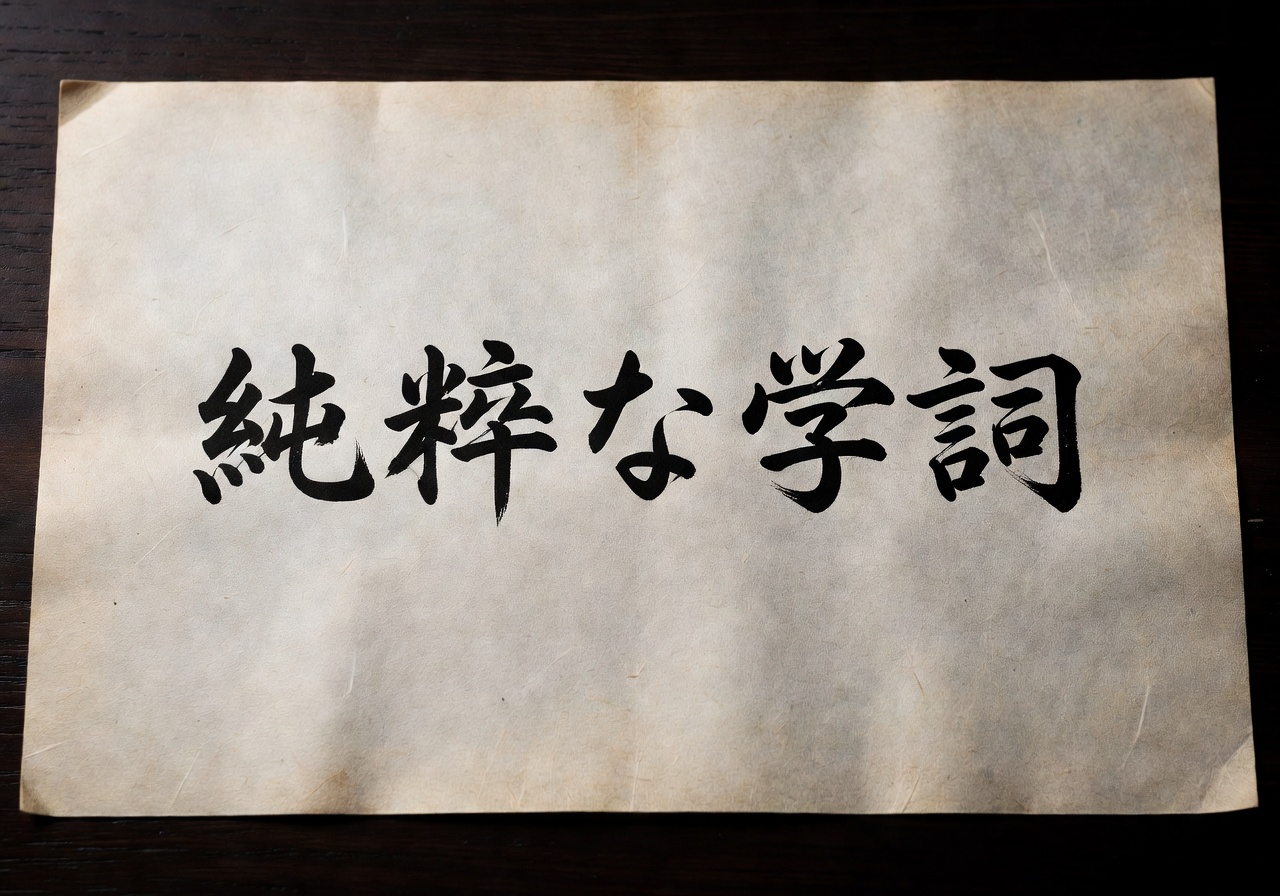 純粋な学詞